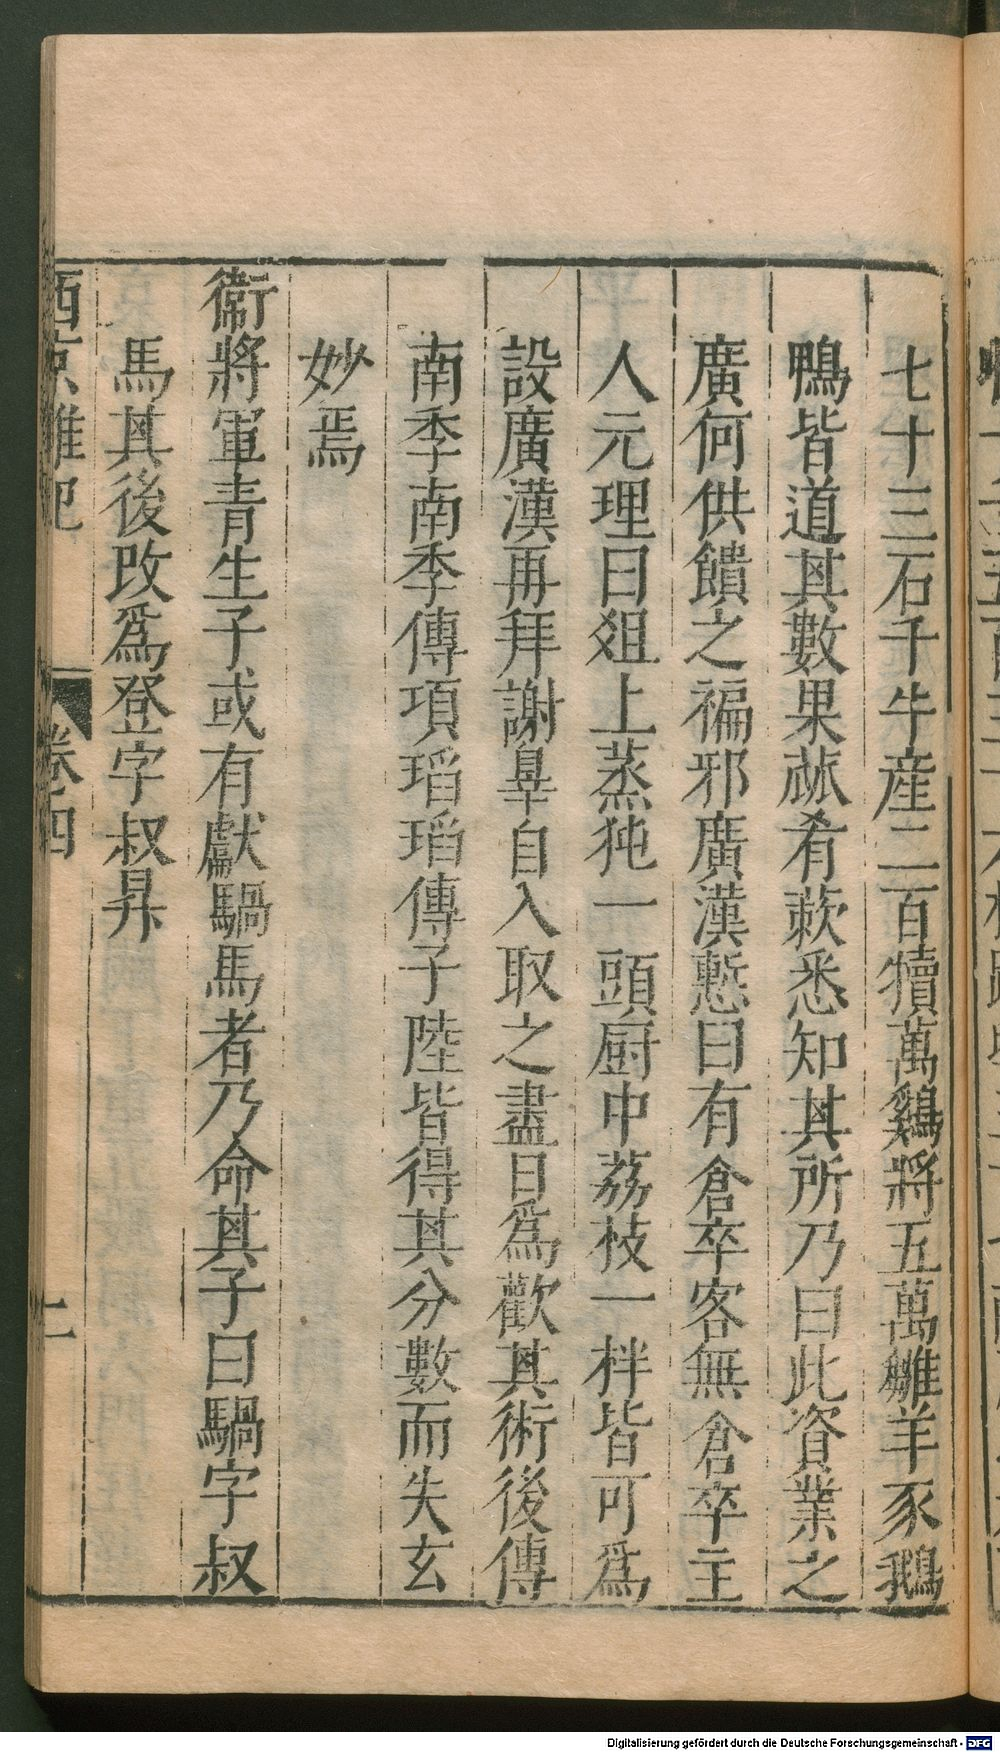 七十三石千牛産二百犢萬鷄將五萬雛羊豕鵝
鴨皆道其數果蓏肴蔌悉知其所乃曰此資業之
廣何供饋之褊邪廣漢慙曰有倉卒客無倉卒主
人元理曰俎上蒸㹠一頭厨中荔枝一柈皆可爲
設廣漢再拜謝辠自入取之盡日爲歡其術後傳
南季南季傳項瑫瑫傳子陸皆得其分數而失玄
妙焉
衞將軍青生子或有獻騧馬者乃命其子曰騧字叔
馬其後改爲登字叔昇
西京雜記 卷四 上
Digitalisierung gefördert durch die Deutsche Forschungsgemeinschaft - DFG